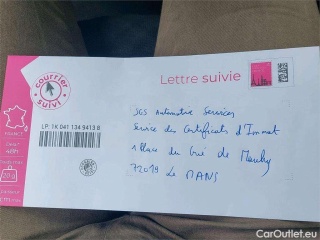 courrier
suivi
Lettre suivie
FRANCE
48H
20g
LP: 1K 041 134 9413 8
SGS Automotive Services
Service des Certificats d'Immat
1 Place du Gué de Maulny
72019 LE MANS
CarOutlet.eu